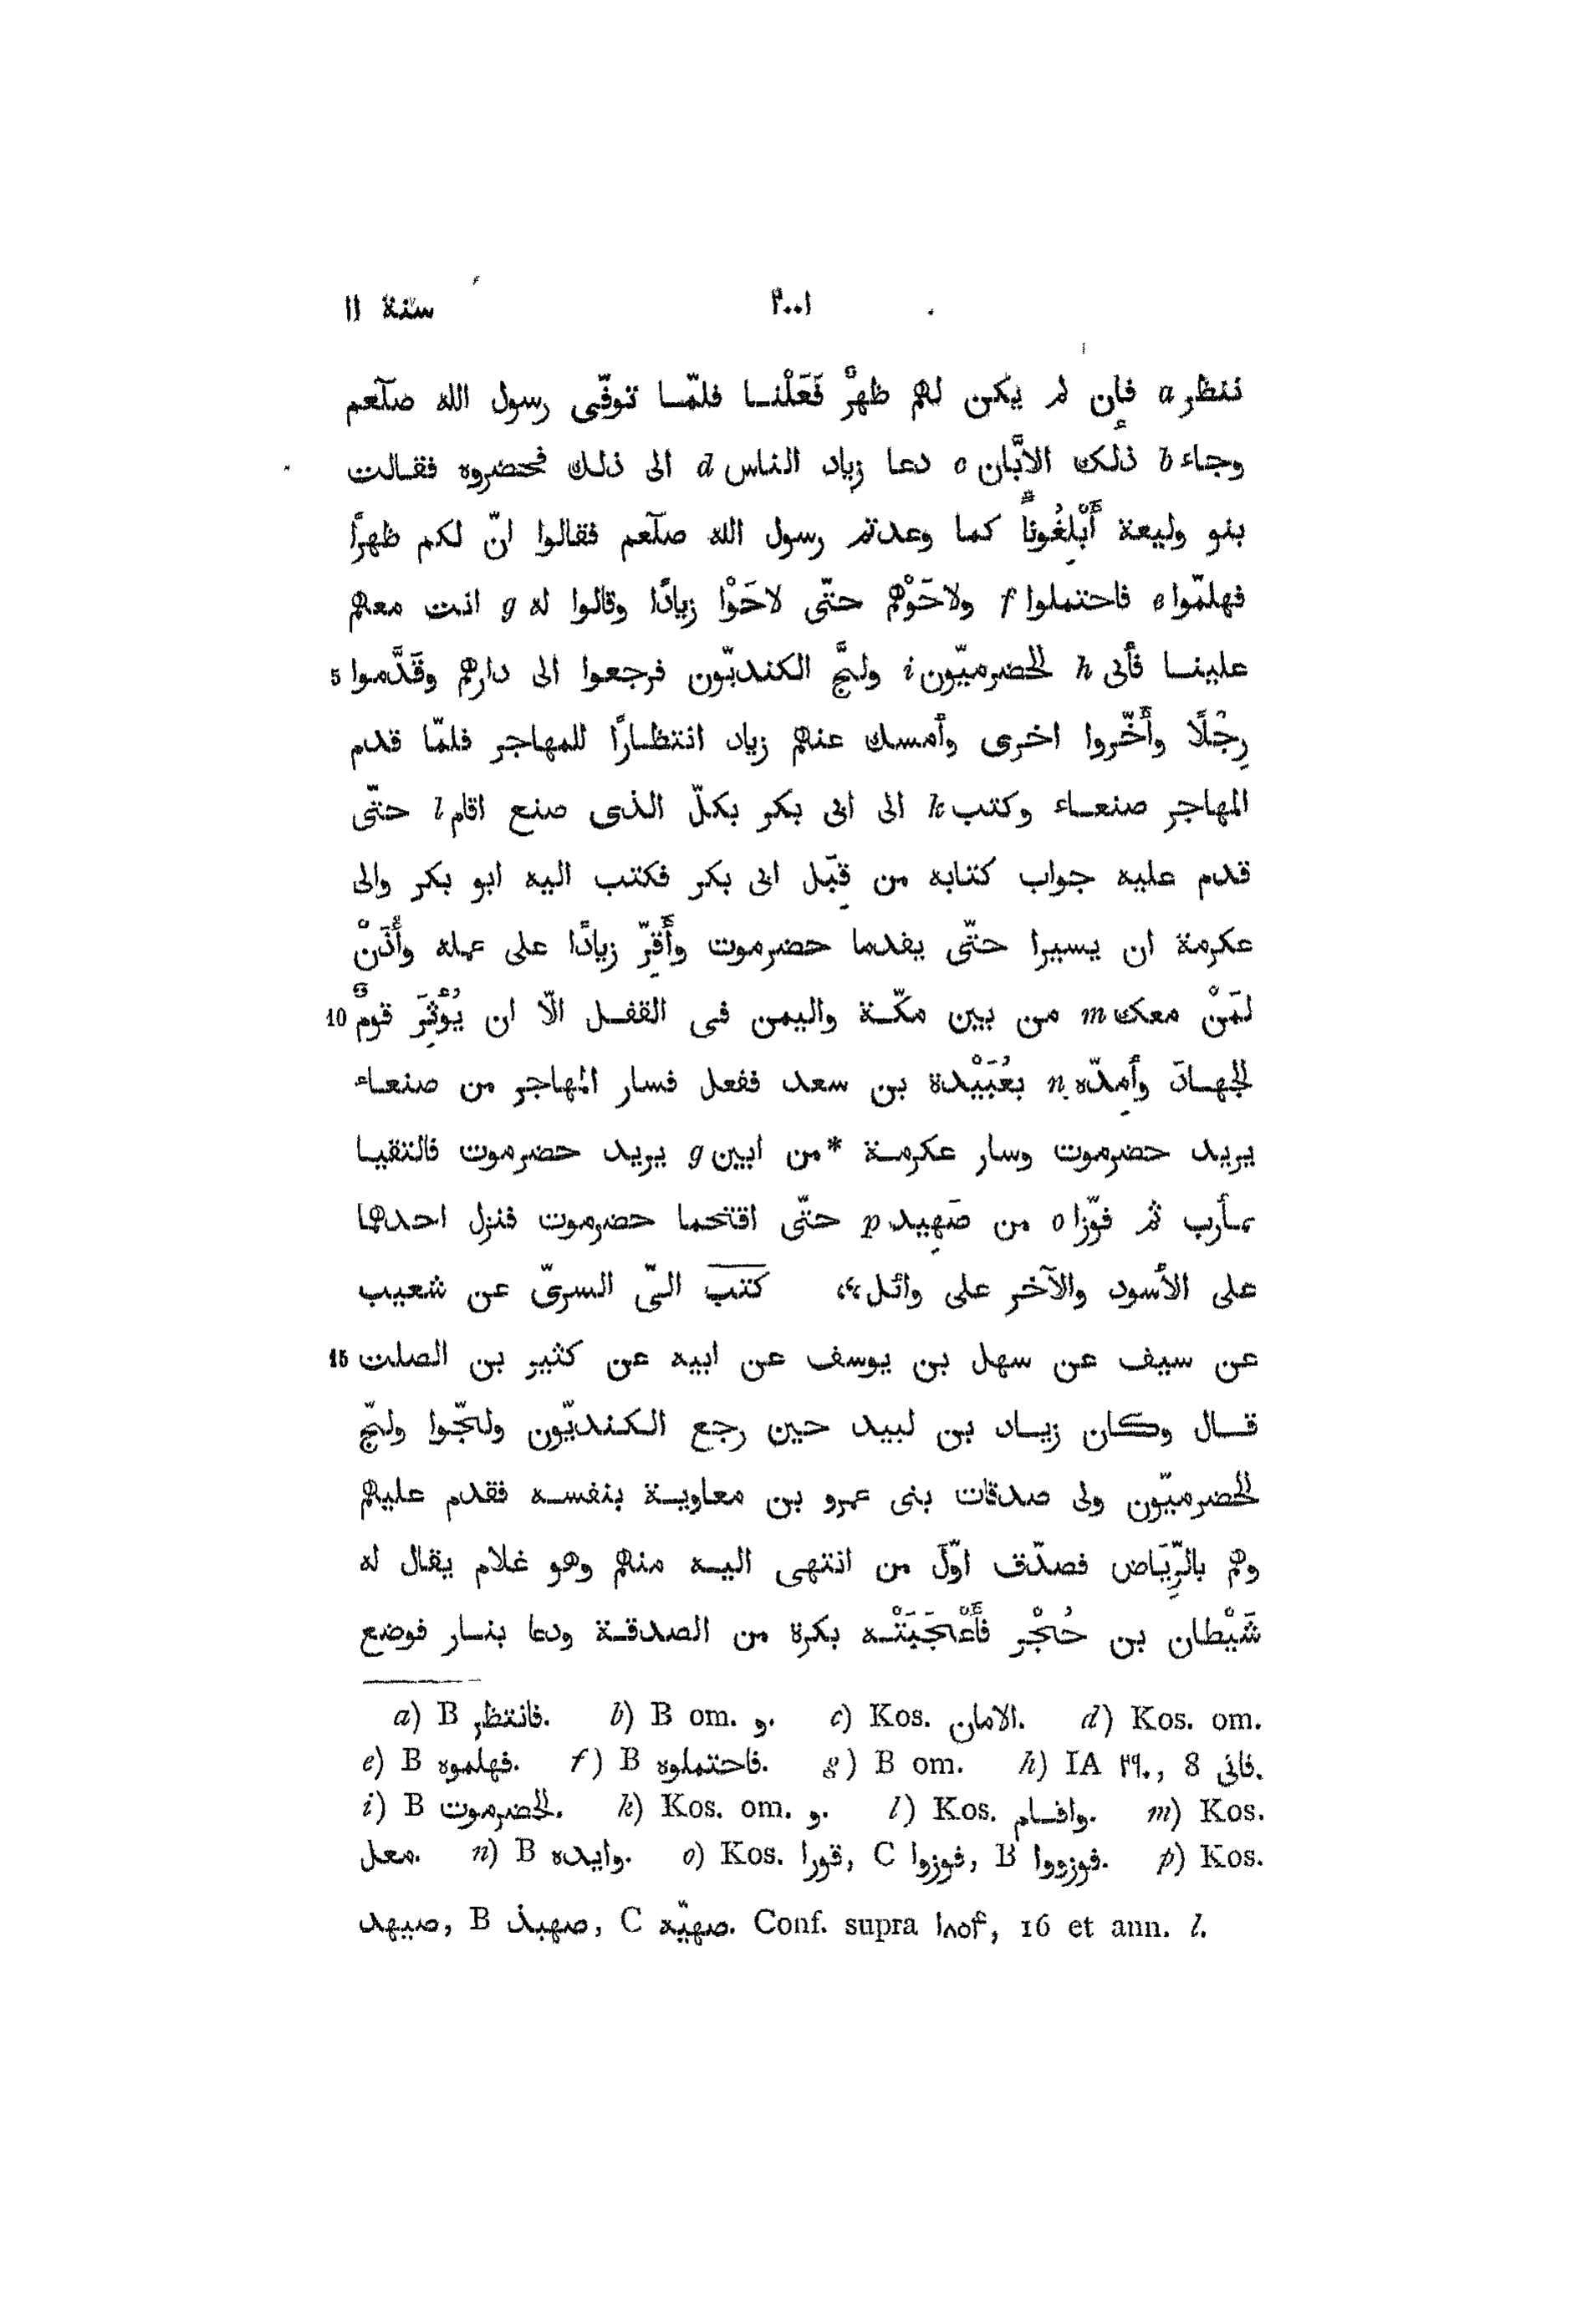 سنة ١١ ٢٠٠١
ننظر a فإن لم يكن لهم ظهرٌ فَعَلْنا فلمّا توفّى رسول الله صلّعم
وجاء b ذلك الإبّان c دعا زياد الناس d الى ذلك فحضروه فقالت
بنو وليعة أَبْلِغُونا كما وعدتم رسول الله صلّعم فقالوا انّ لكم ظهرًا
فهلمّوا e فاحتملوا f ولاحَوْهم حتّى لاحَوْا زيادًا وقالوا له g انت معهم
علينا فأبى h الحضرميّون i ولجَّ الكنديّون فرجعوا الى دارهم وقَدَّموا 5
رِجْلًا وأَخّروا اخرى وأمسك عنهم زياد انتظارًا للمهاجر فلمّا قدم
المهاجر صنعاء وكتب k الى ابى بكر بكلّ الذى صنع اقام l حتّى
قدم عليه جواب كتابه من قِبَل ابى بكر فكتب اليه ابو بكر والى
عكرمة ان يسيرا حتّى يقدما حضرموت وأَقِرّ زيادًا على عمله وأْذَنْ
لمَنْ معك m من بين مكّة واليمن فى القفل الّا ان يُؤْثِرَ قومٌ 10
الجهادَ وأَمِدّه n بعُبَيْدة بن سعد ففعل فسار المهاجر من صنعاء
يريد حضرموت وسار عكرمة *من ابين g يريد حضرموت فالتقيا
بمأرب ثم فوّزا o من صَهِيد p حتّى اقتحما حضرموت فنزل احدهما
على الأسود والآخر على وائل، كتب الىّ السرىّ عن شعيب
عن سيف عن سهل بن يوسف عن ابيه عن كثير بن الصلت 15
قال وكان زياد بن لبيد حين رجع الكنديّون ولجّوا ولجّ
الحضرميّون ولى صدقات بنى عمرو بن معاوية بنفسه فقدم عليهم
وهم بالرِّيَاض فصدّق اوّلَ من انتهى اليه منهم وهو غلام يقال له
شَيْطان بن حُجْر فأَعْجَبَتْه بكرة من الصدقة ودعا بنار فوضع
a) B فانتظر. b) B om. و. c) Kos. الامان. d) Kos. om.
e) B فهلموه. f) B فاحتملوه. g) B om. h) IA ٢٩٠, 8 فانى.
i) B الحضرموت. k) Kos. om. و. l) Kos. وافام. m) Kos.
معل. n) B وايده. o) Kos. قورا, C فوزوا, B فوزووا. p) Kos.
صيهد, B صهبذ, C صهيّه. Conf. supra ١٨٥٤, 16 et ann. l.